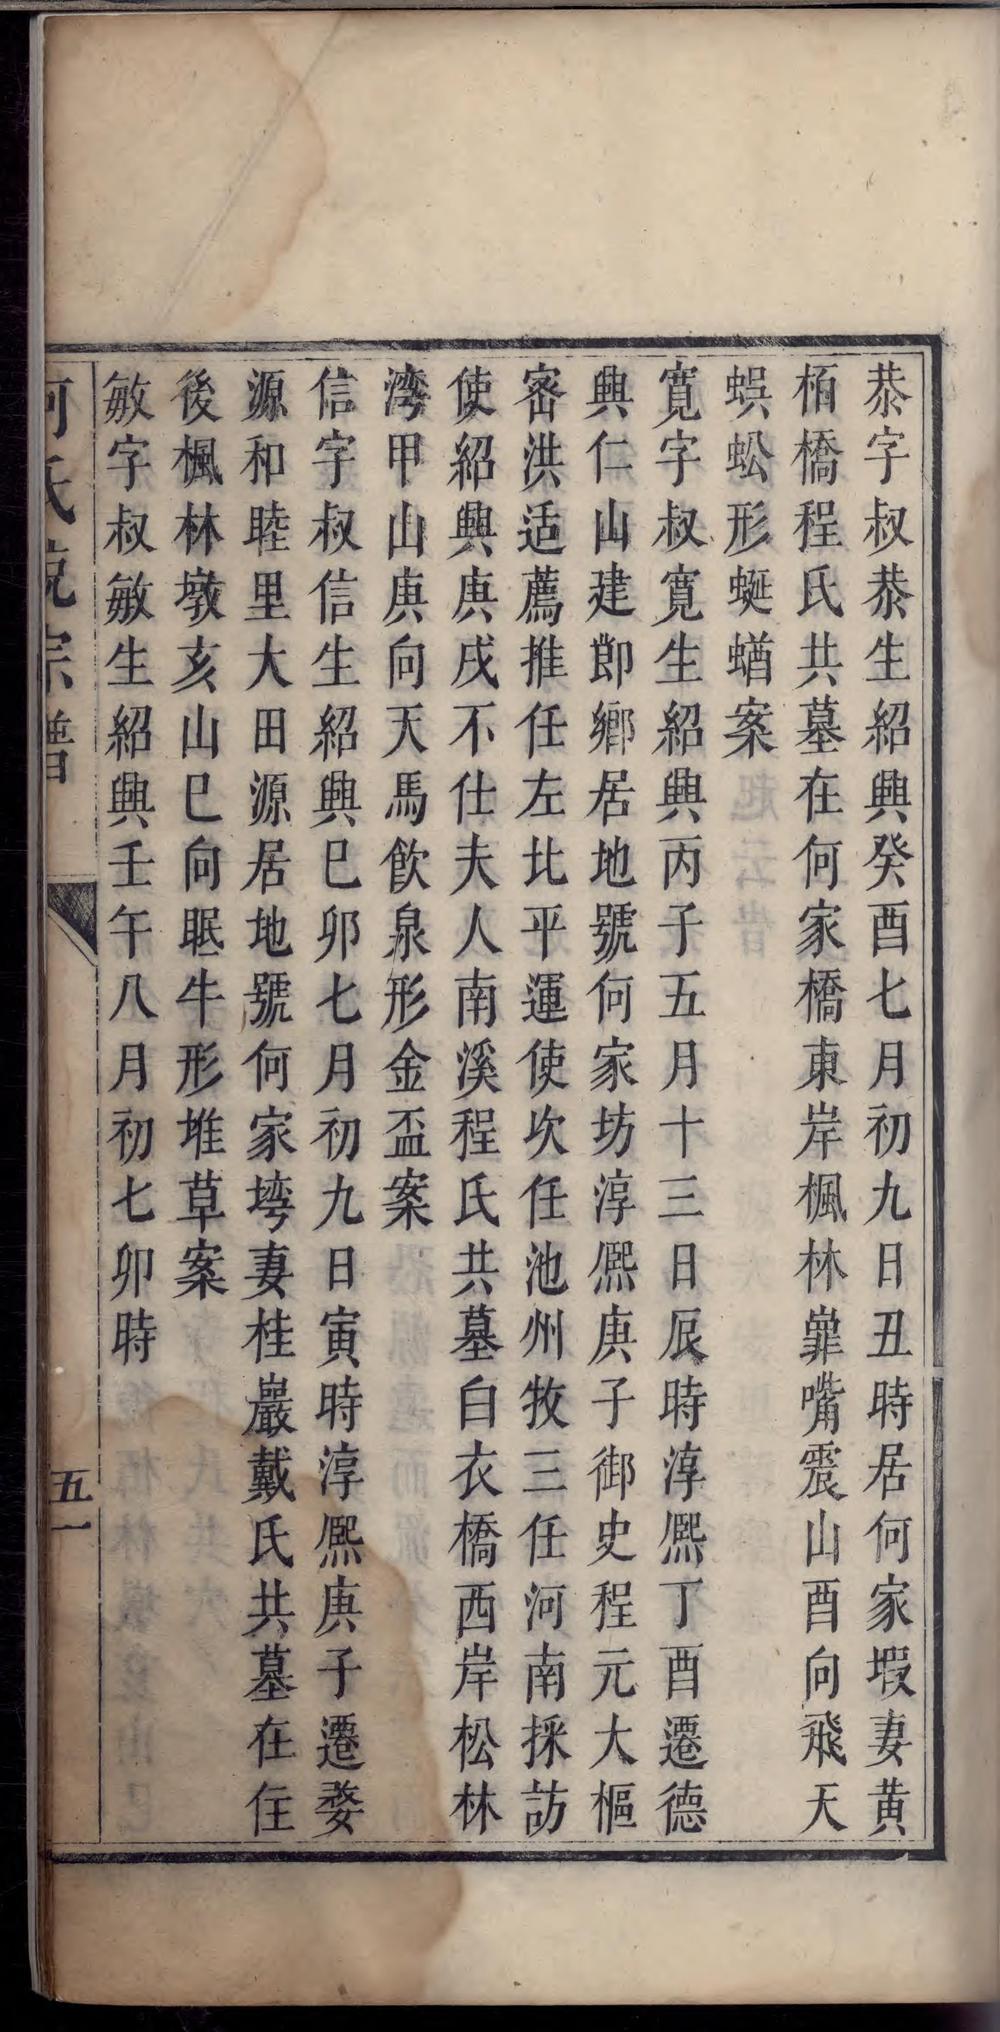 恭字叔恭生紹興癸酉七月初九日丑時居何家塅妻黄
栢橋程氏共墓在何家橋東岸楓林嘴震山酉向飛天
蜈蚣形蜒蝤案
寬字叔寬生紹興丙子五月十三日辰時淳熈丁酉遷德
興仁山建節鄉居地號何家坊淳熈庚子御史程元大樞
密洪适薦推任左北平運使次任池州牧三任河南採訪
使紹興庚戌不仕夫人南溪程氏共墓白衣橋西岸松林
湾甲山庚向天馬飲泉形金盃案
信字叔信生紹興巳卯七月初九日寅時淳熈庚子遷婺
源和睦里大田源居地號何家塆妻桂巖戴氏共墓在住
後楓林墩亥山巳向眠牛形堆草案
敏字叔敏生紹興壬午八月初七卯時
何氏統宗譜
五一